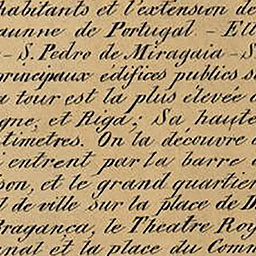 habitants et l'extension de
de Portugal -
- S. Pedro de Miragaia - S
principaux édifices publics s
a tour est la plus élevée
gne, et Riga; Sa haute
timetres. On la découvre
i entrent par la barre
son, et le grand quartier
l de ville sur la place de D
Bragança, le Theatre Roy
anal et la place du Comm